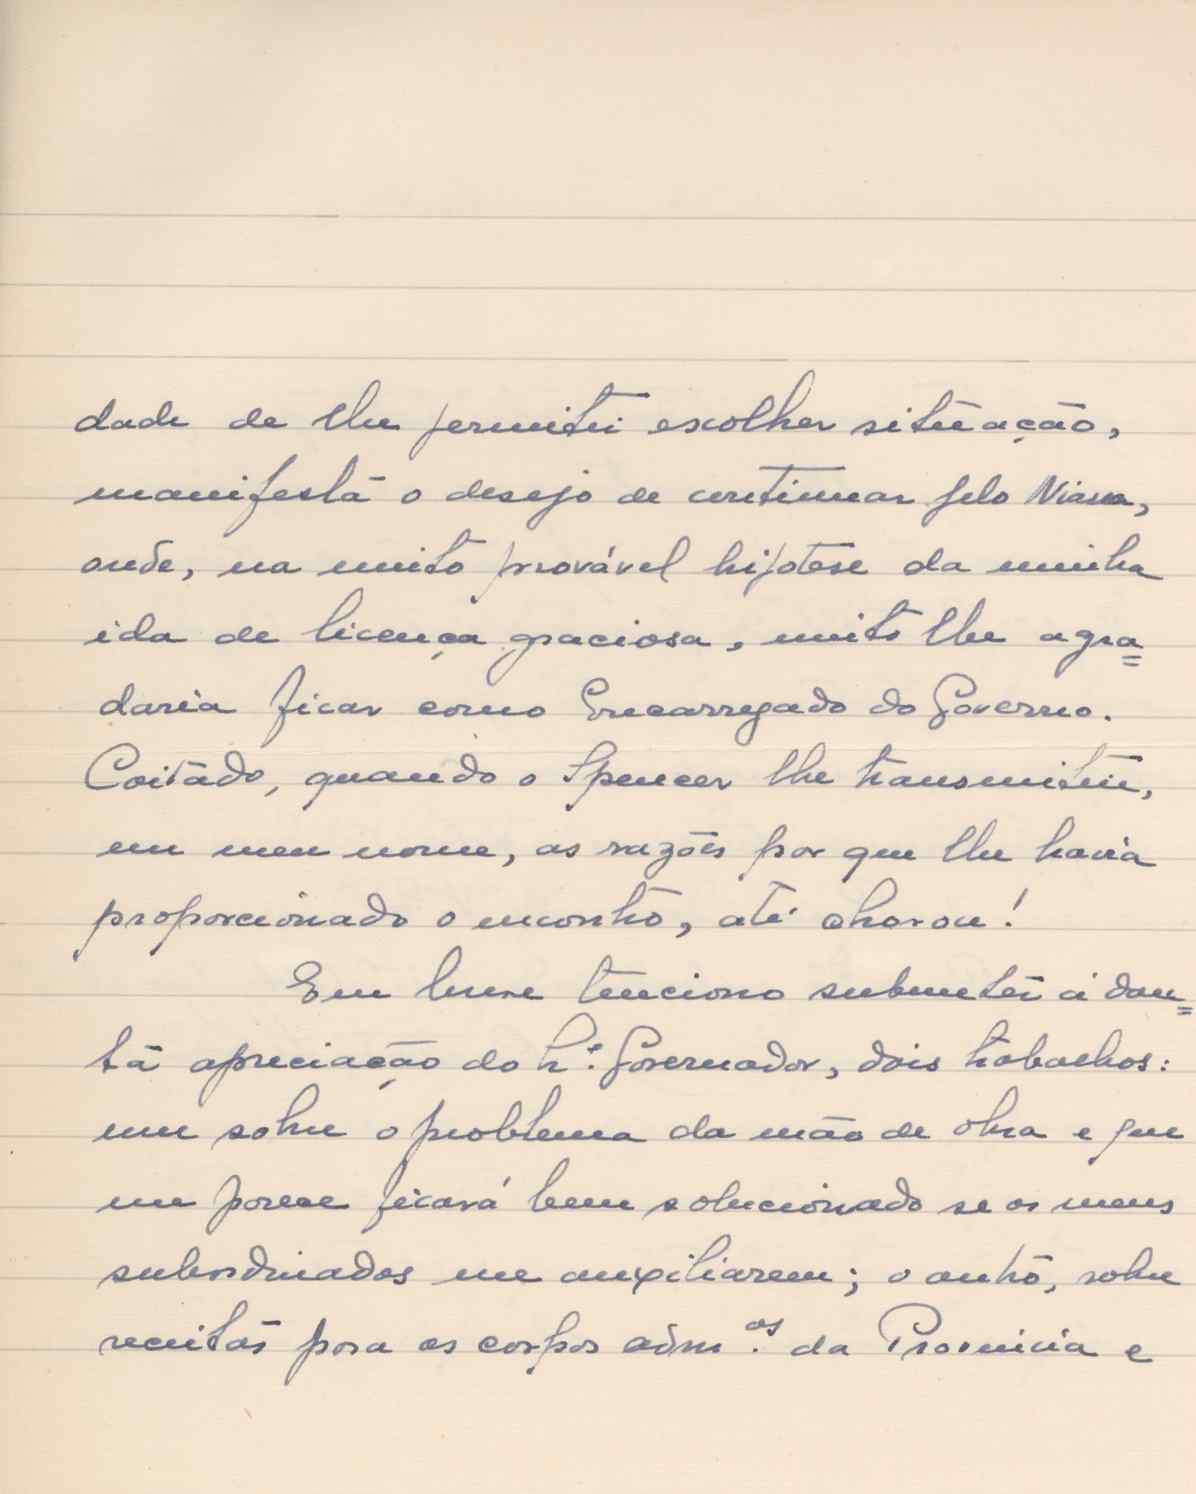 dade de lhe permitir escolher situação,
manifesta o desejo de continuar pelo Niassa,
onde, na muito provável hipótese da minha
ida de licença graciosa, muito lhe agra=
daria ficar como Encarregado do Governo.
Coitado, quando o Spencer lhe transmitiu,
em meu nome, as razões por que lhe havia
proporcionado o encontro, até chorou!
Em breve tenciono submeter à dou=
ta apreciação do Sr. Governador, dois trabalhos:
um sobre o problema da mão de obra e que
me parece ficará bem solucionado se os meus
subordinados me auxiliarem; o outro, sobre
receitas para os corpos adm.os da Província e